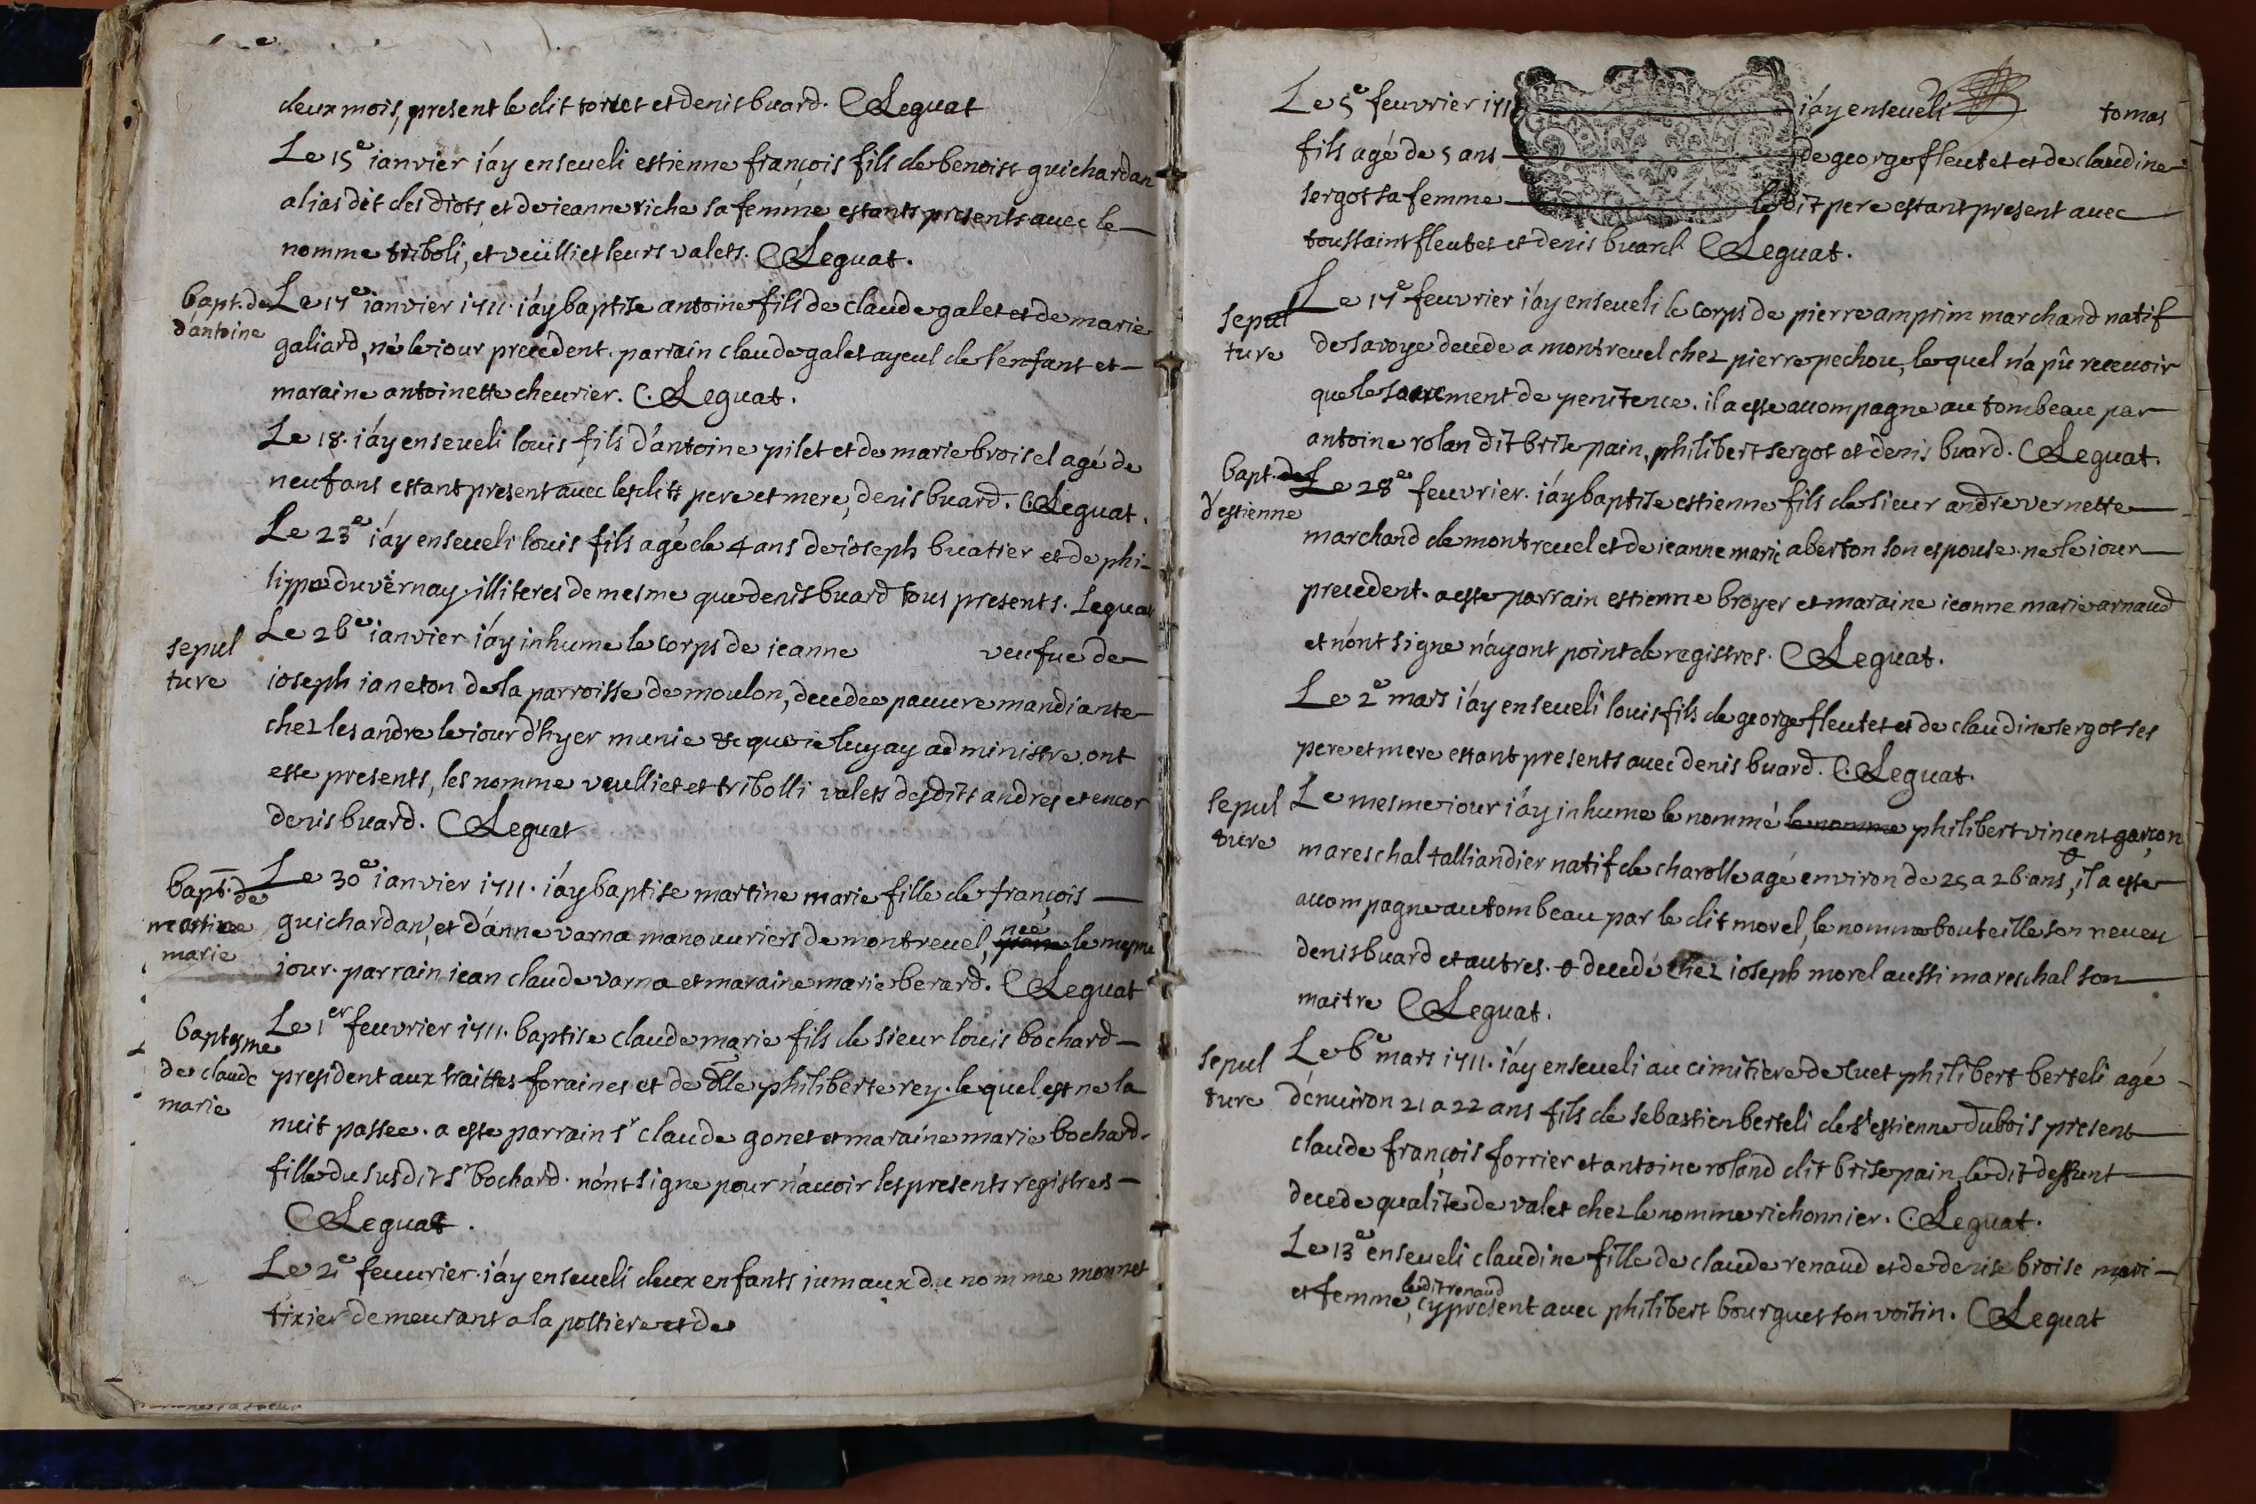 deux mois, present le dit torret et denis buard. CLeguat
Le 15e ianvier i'ay enseveli estienne françois fils de benoist guichardan
alias dit des diots et de ieanne riche sa femme estants presents avec le
nomme triboli, et veülliet leurs valets. CLeguat.
bapt. de
d'antoine
Le 17e ianvier 1711. i'ay baptise antoine fils de claude galet et de marie
galiard, né le iour precedent. parrain claude galet ayeul de l'enfant et
maraine antoinette cheurier. C. Leguat.
Le 18. i'ay enseveli louis fils d'antoine pilet et de marie broisel agé de
neuf ans estant present avec lesdits pere et mere, denis buard. C.Leguat.
Le 23e i'ay enseveli louis fils agé de 4 ans de ioseph buatier et de phi-
lippe du vernay. illiteres de mesme que denis buard tous presents. Leguat
sepul
ture
Le 26e ianvier i'ay inhume le corps de ieanne veufue de
ioseph ianeton de la parroisse de moulon, decedee pauure mandiante
chez les andre le iour d'hyer munie &c que ie luy ay administre, ont
esté presents, les nomme veulliet et tribolli valets desdits andres et encor
denis buard. CLeguat
bapt. de
martine
marie
Le 30e ianvier 1711. i'ay baptise martine marie fille de françois
guichardan, et d'anne varna manouuriers de montreuel, née le mesme
iour. parrain iean claude varna et maraine marie berard. CLeguat
baptesme
de claude
marie
Le 1er feuvrier 1711. baptise claude marie fils de sieur louis bochard
president aux traittes foraines et de dlle philiberte rey. lequel est ne la
nuit passee. a esté parrain sr claude gonet et maraine marie bochard
fille du susdit sr bochard. n'ont signe pour n'auoir les presents registres
CLeguat.
Le 2e feuvrier. i'ay enseveli deux enfants iumaux du nomme monnet
tixier demeurant a la poltiere et de
Le 5e feuvrier 1711 i'ay enseveli tomas
fils agé de 5 ans de george fleutet et de claudine
sergot sa femme le dit pere estant present avec
toussaint fleutet et denis buard CLeguat.
sepul
ture
Le 17e feuvrier i'ay enseveli le corps de pierre amprim marchand natif
de savoye decede a montreuel chez pierre pechou, lequel n'a pû receuoir
que le sacrement de penitence. il a esté accompagne au tombeau par
antoine rolan dit brise pain, philibert sergot et denis buard. CLeguat.
bapt. de
d'estienne
Le 28e feuvrier. i'ay baptise estienne fils de sieur andre vernette
marchand de montreuel et de ieanne marie aberton son espouse. ne le iour
precedent. a esté parrain estienne broyer et maraine ieanne marie arnaud
et n'ont signe n'ayant point de registres. CLeguat.
Le 2e mars i'ay enseveli louis fils de george fleutet et de claudine sergot ses
pere et mere estant presents avec denis buard. C.Leguat.
sepul
ture
Le mesme iour i'ay inhume le nommé le nomme philibert vincent garçon
mareschal talliandier natif de charolle agé environ de 25 a 26 ans, il a esté
accompagne au tombeau par le dit morel, le nomme bouteille son neueu
denis buard et autres. decedé chez ioseph morel aussi mareschal son
maitre CLeguat.
sepul
ture
Le 6e mars 1711. i'ay enseveli au cimitiere de cuet philibert berteli agé
d'enuiron 21 a 22 ans fils de sebastien berteli de st estienne du bois present
claude françois forrier et antoine roland dit brise pain, le dit deffunt
decede qualite de valet chez le nomme richonnier. C.Leguat.
Le 13e enseveli claudine fille de claude renaud et de denise broise mari-
et femme, le dit renaud cy present avec philibert bourguet son voisin. CLeguat